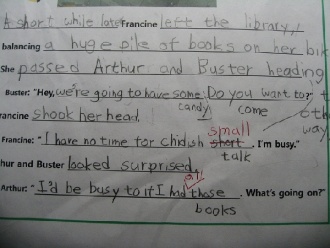 A short while later Francine left the library,
balancing a huge pike of books on her bik
She passed Arthur and Buster heading
Buster: "Hey, we're going to have some candy. Do you want to come?"
rancine shook her head.
Francine: "I have no time for chidish short small talk, I'm busy."
hur and Buster looked surprised.
Arthur: "I'd be busy to if I had all those books. What's going on?"